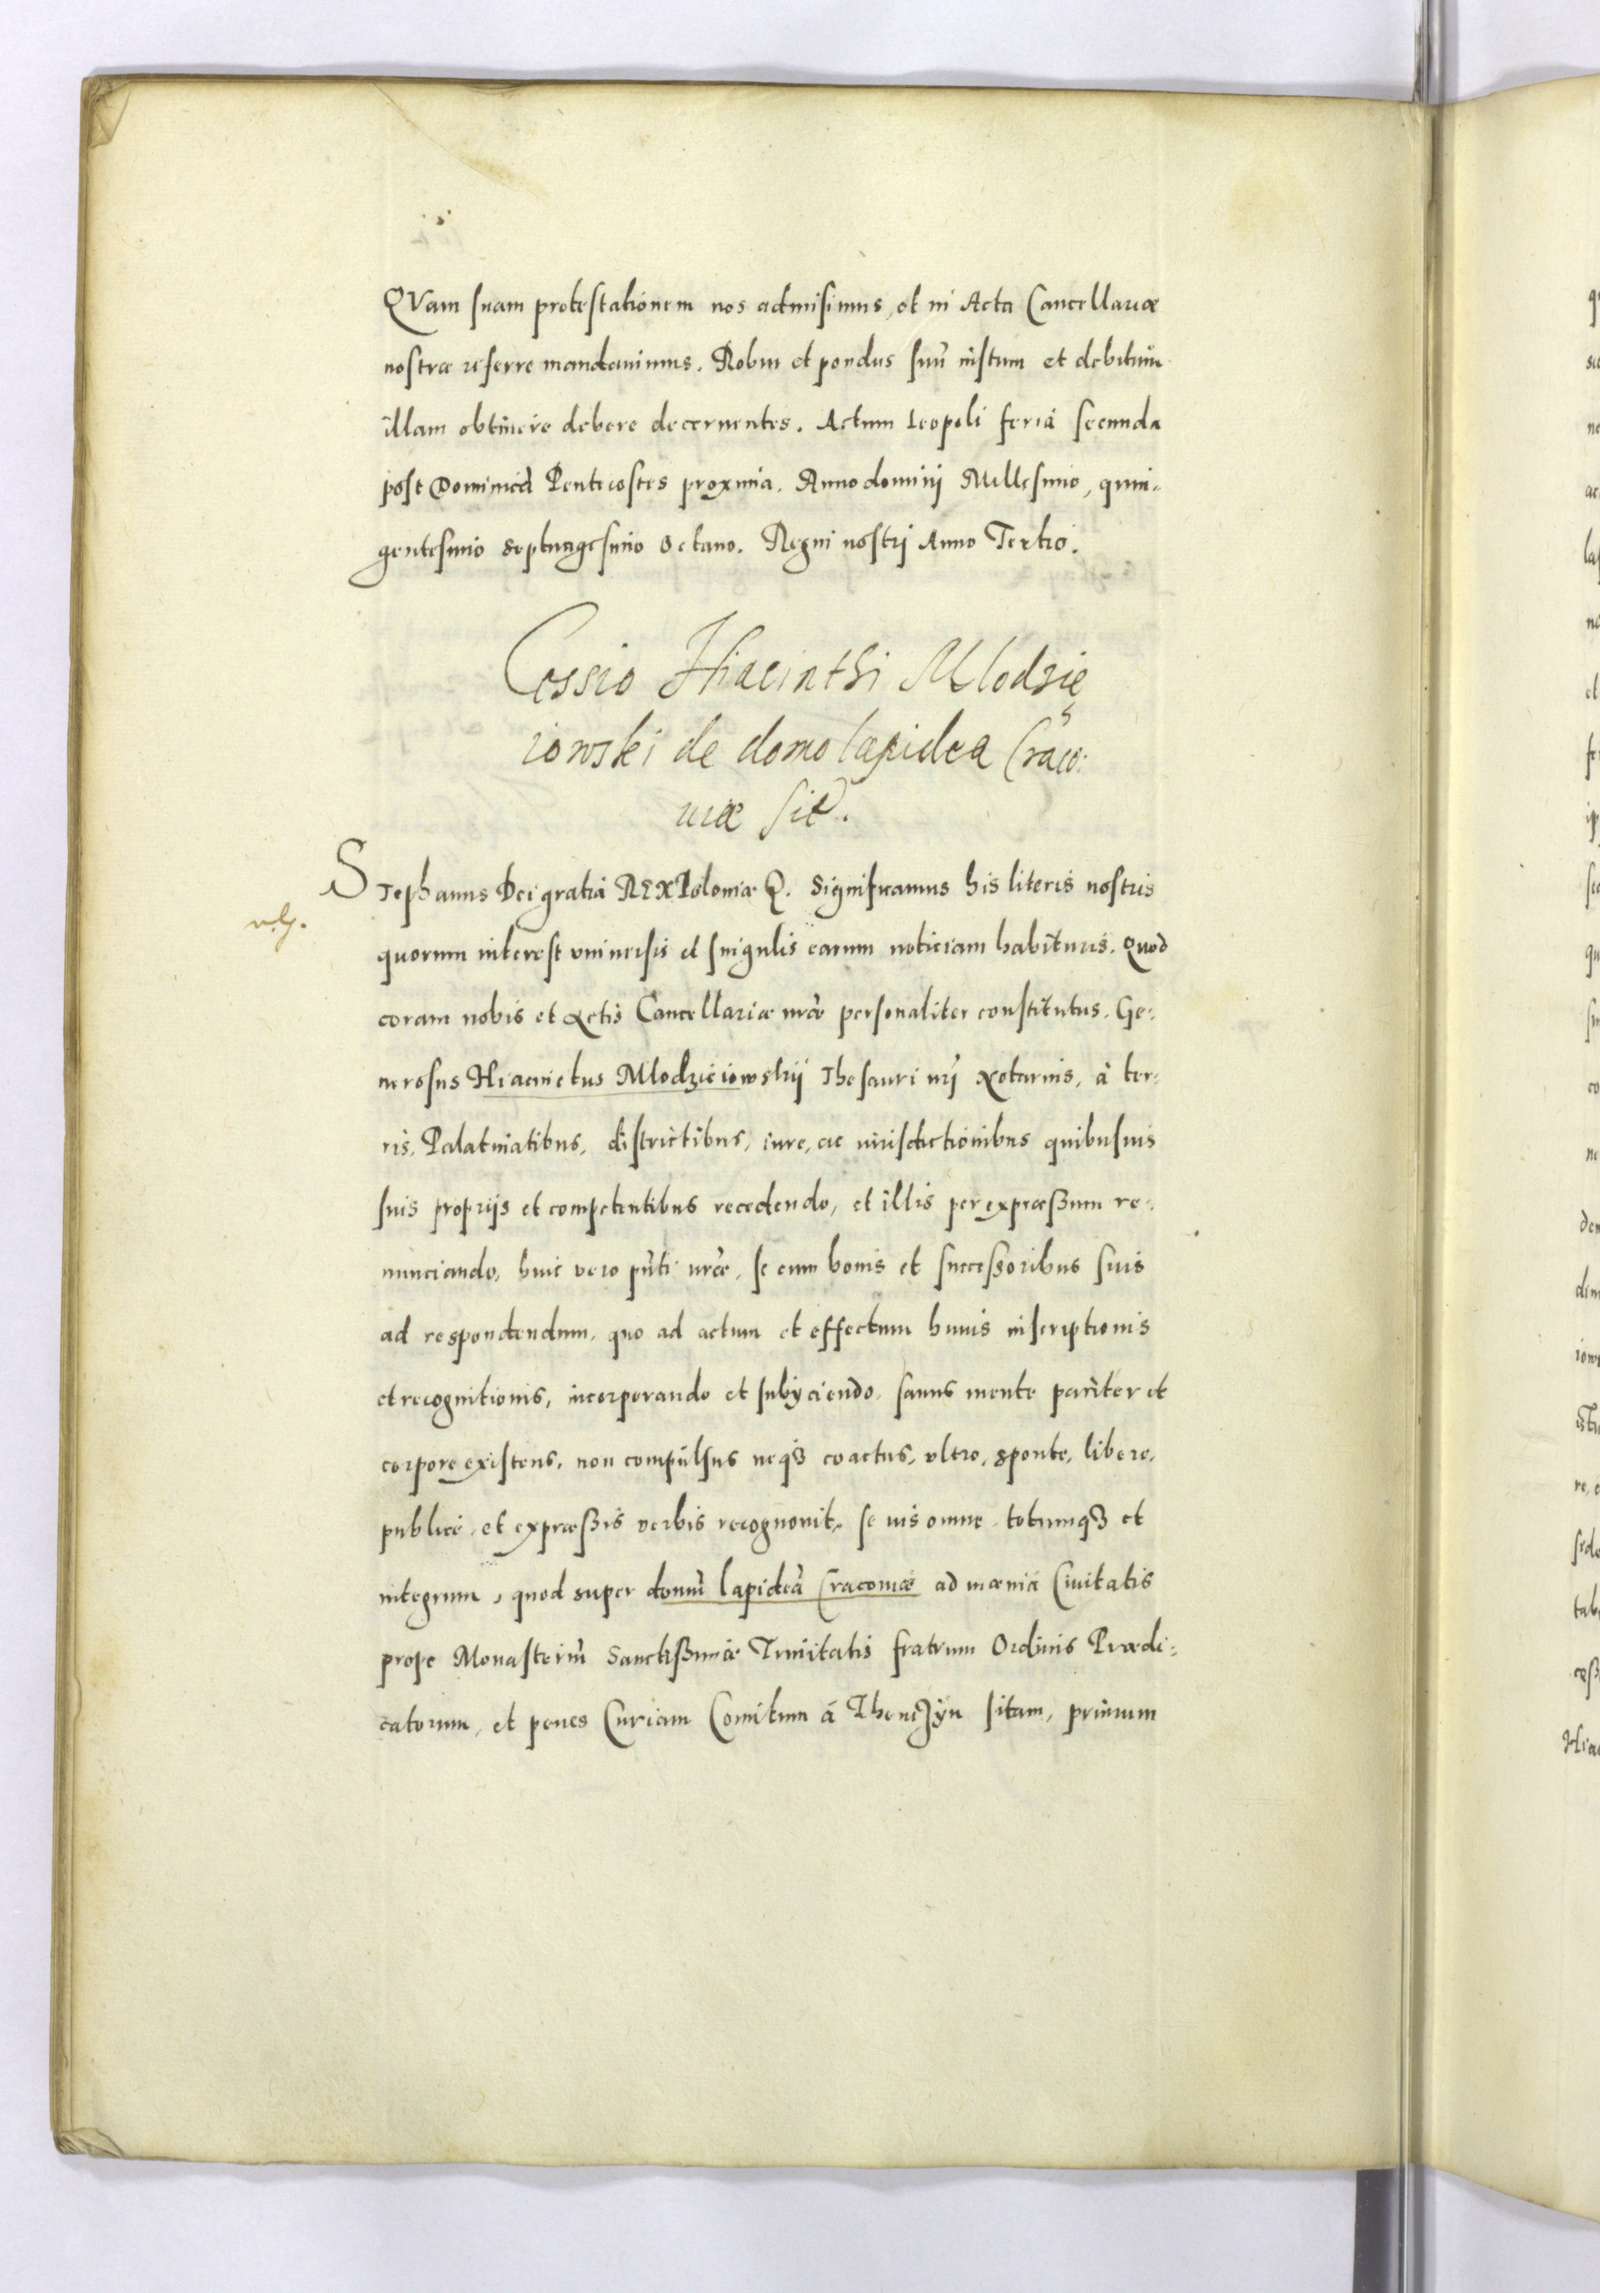 QVam suam protestationem nos admisimus, et in Acta Cancellariæ
nostræ referre mandauimus. Robur et pondus suũ iustum et debitum
illam obtinere debere decernentes. Actum Leopoli feria secunda
post Dominicã Pentecostes proxima. Anno dominij Millesimo, quin-
gentesimo septuagesimo Octauo. Regni nostrj Anno Tertio.
Cessio Hiacinthi Mlodzie
iowski de domo lapidea Craco:
uiæ sit.
Stephanus Dei gratia REX Poloniæ &. Significamus his literis nostris
quorum interest vniuersis et singulis earum noticiam habituris. Quod
coram nobis et Actis Cancellariæ nr̃æ personaliter constitutus. Ge:
nerosus Hiacinctus Mlodzieiowskij Thesauri nrĩ Notarius, à ter:
ris, Palatinatibus, districtibus, iure, ac iurisdictionibus quibusuis
suis proprijs et competentibus recedendo, et illis per expræßum re:
nunciando, huic vero pñti nr̃æ, se cum bonis et succeßoribus suis
ad respondendum, quo ad actum et effectum huius inscriptionis
et recognitionis, incorporando et subijciendo, sanus mente pariter et
corpore existens, non compulsus neqꝫ coactus, vltro, sponte, libere,
publicè, et expræßis verbis recognouit, se ius omne totumqꝫ et
integrum, quod super domũ lapideã Cracouiæ ad mænia Ciuitatis
prope Monasteriũ Sanctißimæ Trinitatis fratrum Ordinis Prædi:
catorum, et penes Curiam Comitum à Thenczyn sitam, primum